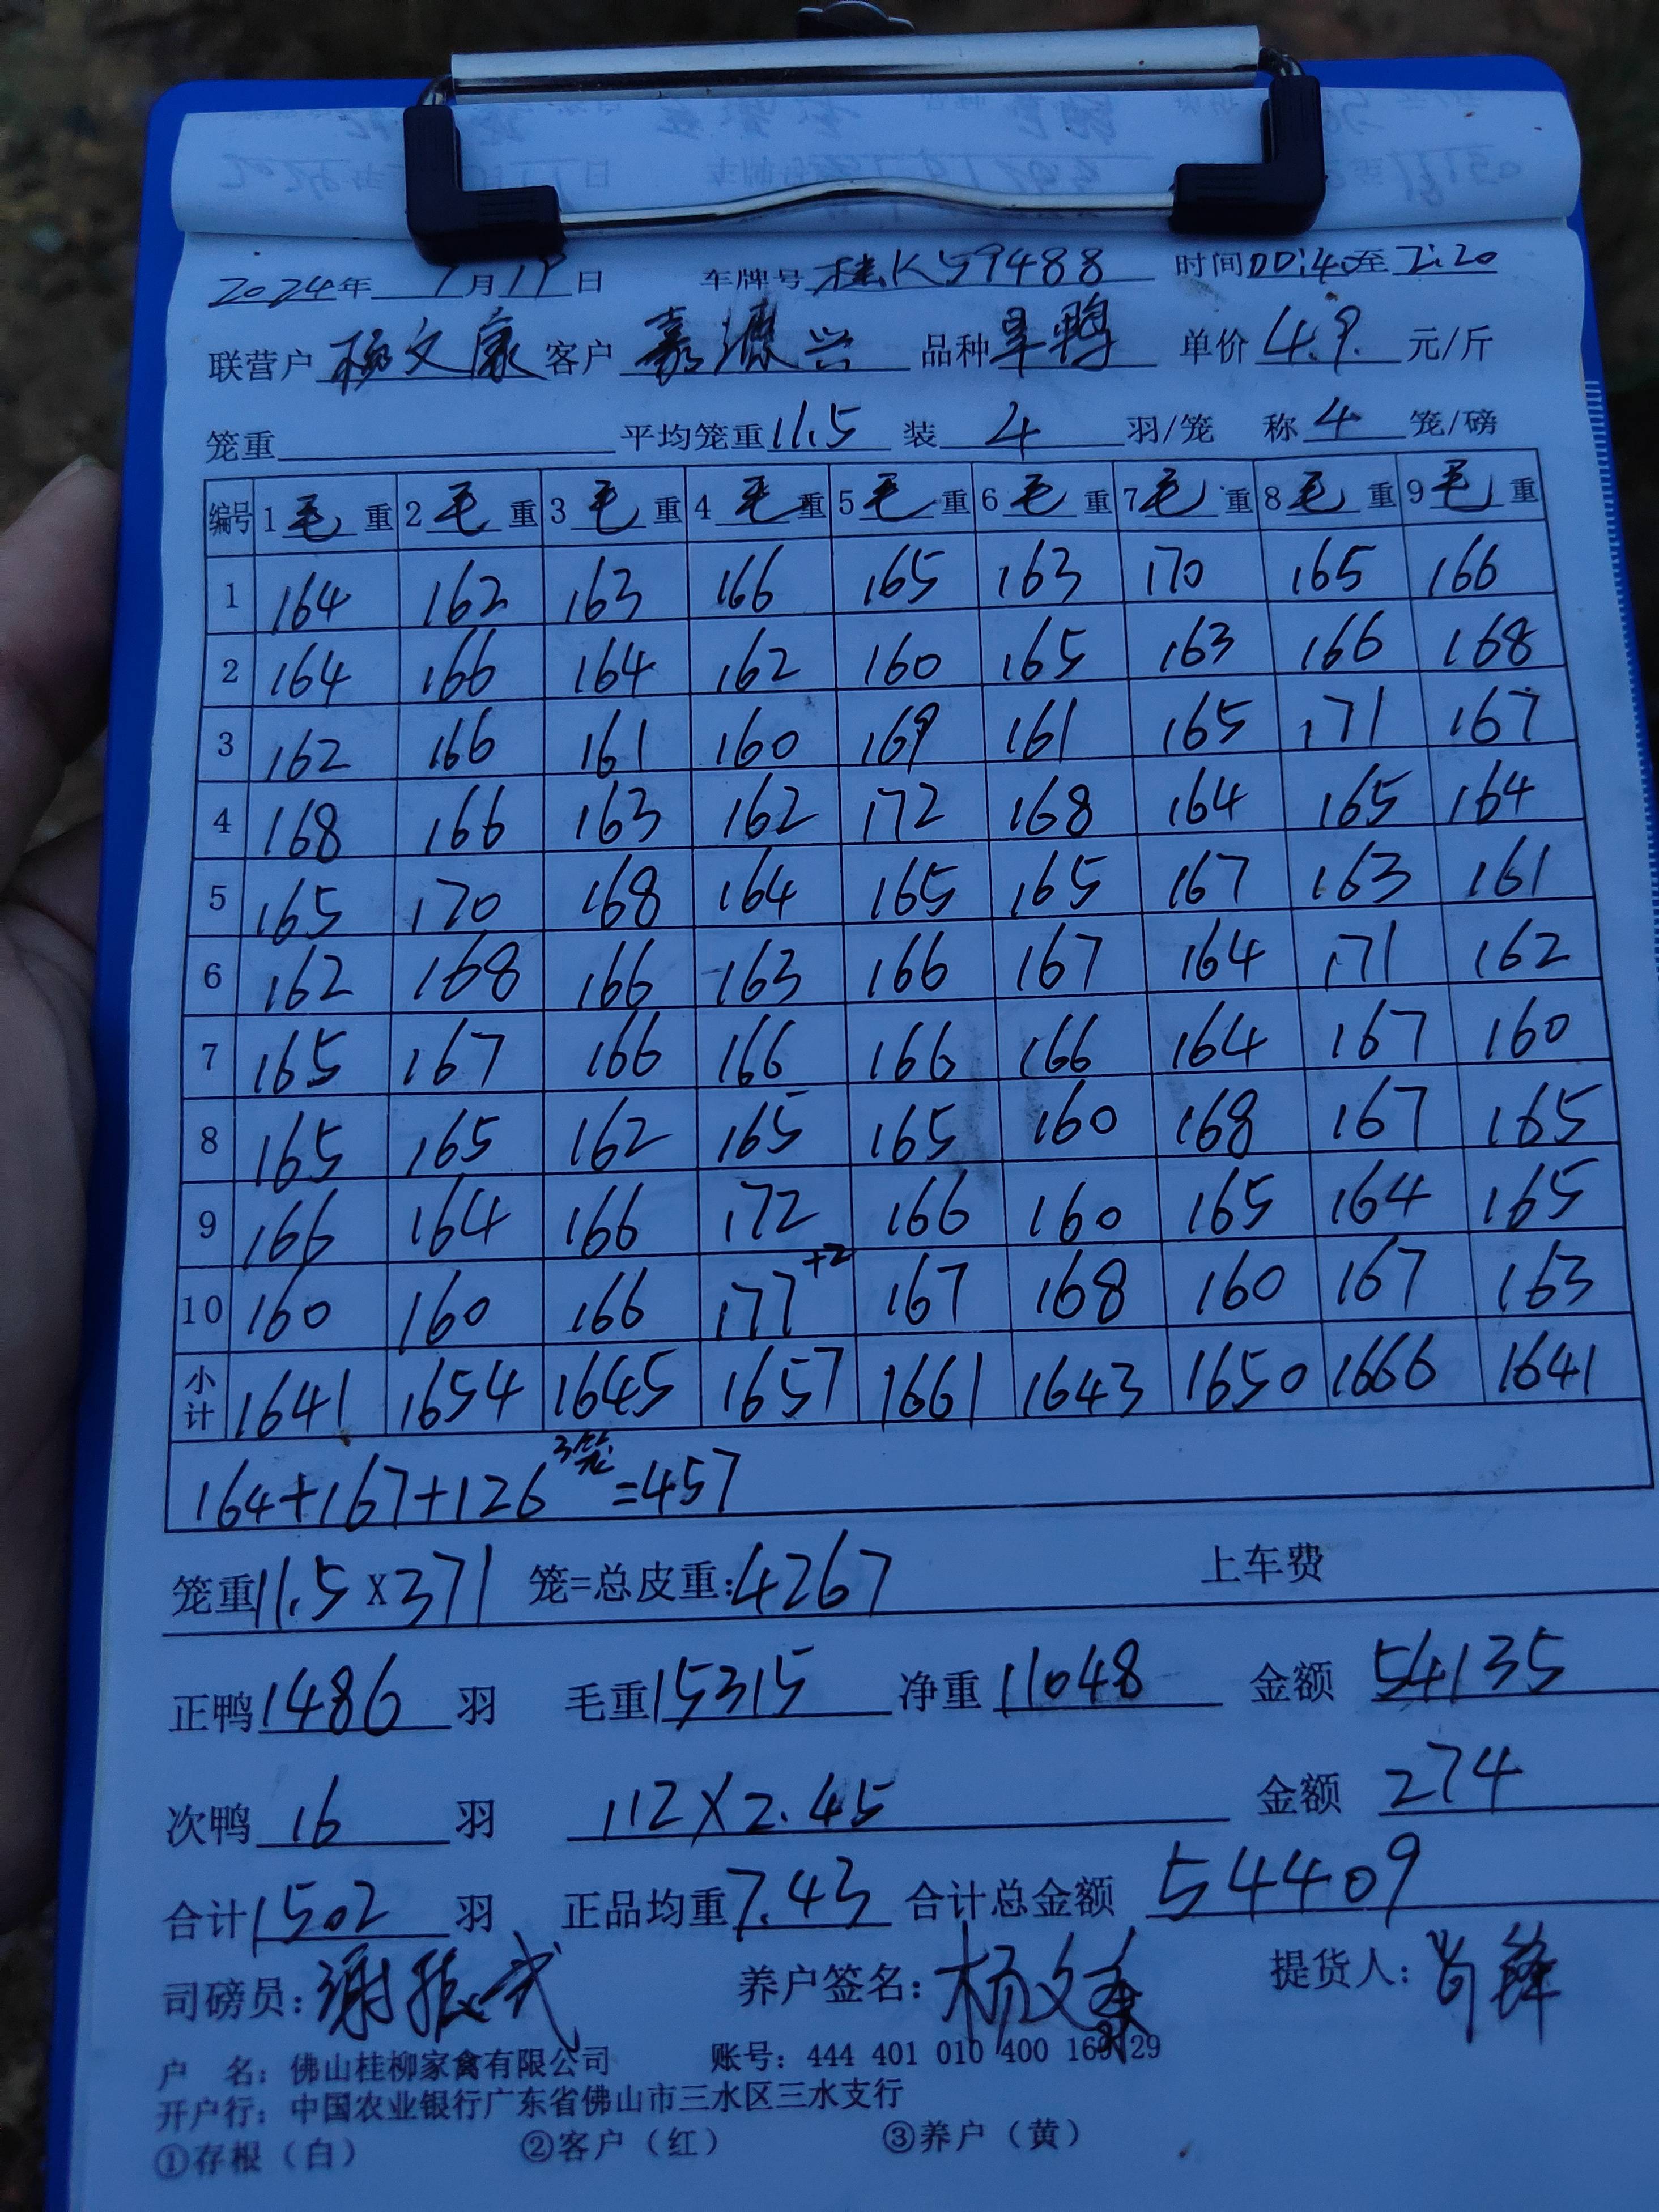 2024年 7月19日 车牌号 桂K59488 时间00:40至2:20
联营户 杨文康 客户 嘉源兴 品种 旱鸭 单价 4.9 元/斤
笼重 平均笼重 11.5 装 4 羽/笼 称 4 笼/磅
编号 1 毛 重 2 毛 重 3 毛 重 4 毛 重 5 毛 重 6 毛 重 7 毛 重 8 毛 重 9 毛 重
1 164 162 163 166 165 163 170 165 166
2 164 166 164 162 160 165 163 166 168
3 162 166 161 160 169 161 165 171 167
4 168 166 163 162 172 168 164 165 164
5 165 170 168 164 165 165 167 163 161
6 162 168 166 163 166 167 164 171 162
7 165 167 166 166 166 166 164 167 160
8 165 165 162 165 165 160 168 167 165
9 166 164 166 172 166 160 165 164 165
10 160 160 166 177+2 167 168 160 167 163
小计 1641 1654 1645 1657 1661 1643 1650 1666 1641
164+167+126 3笼 =457
笼重 11.5 x 371 笼=总皮重: 4267 上车费
正鸭 1486 羽 毛重 15315 净重 11048 金额 54135
次鸭 16 羽 112 X 2.45 金额 274
合计 1502 羽 正品均重 7.43 合计总金额 54409
司磅员: 养户签名: 杨文 提货人:
户 名: 佛山桂柳家禽有限公司 账号: 444 401 010 400 29
开户行: 中国农业银行广东省佛山市三水区三水支行
①存根（白） ②客户（红） ③养户（黄）